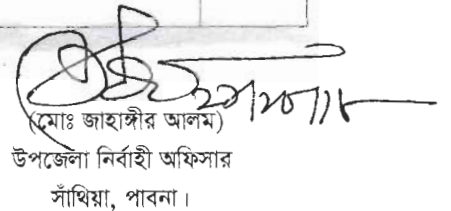 (মোঃ জাহাঙ্গীর আলম)
উপজেলা নির্বাহী অফিসার
সাঁথিয়া, পাবনা।